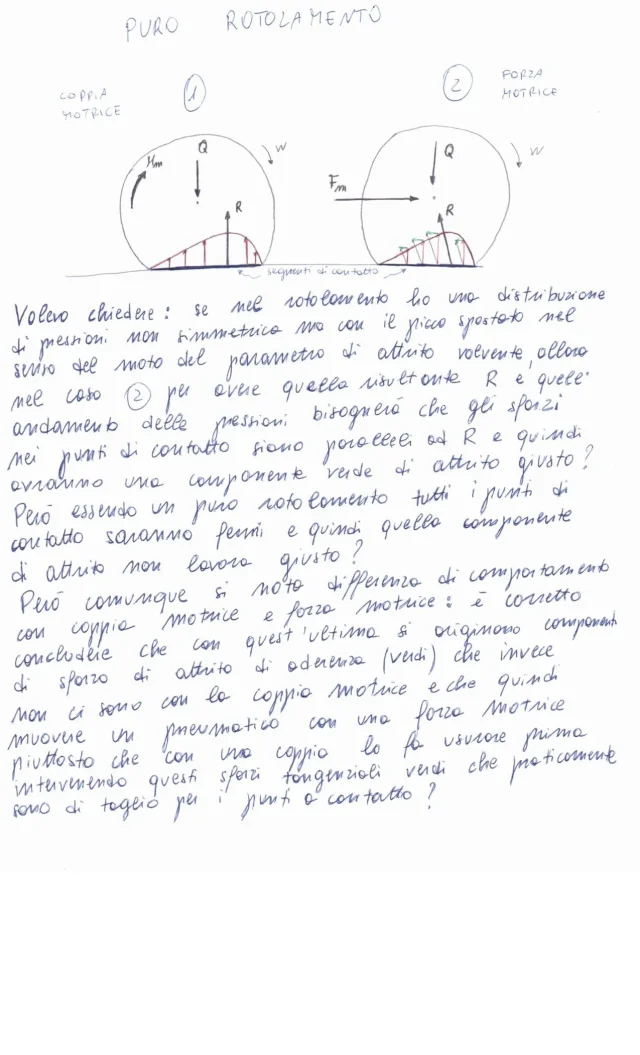 PURO ROTOLAMENTO
COPPIA MOTRICE
1
2
FORZA MOTRICE
Mm
Q
W
R
Fm
Q
W
R
segmenti di contatto
Volevo chiedere : se nel rotolamento ho una distribuzione
di pressioni non simmetrica ma con il picco spostato nel
senso del moto del parametro di attrito volvente, allora
nel caso 2 per avere quella risultante R e quell'
andamento delle pressioni bisognerà che gli sforzi
nei punti di contatto siano paralleli ad R e quindi
avranno una componente verde di attrito giusto ?
Però essendo un puro rotolamento tutti i punti di
contatto saranno fermi e quindi quella componente
di attrito non lavora giusto ?
Però comunque si nota differenza di comportamento
con coppia motrice e forza motrice : è corretto
concludere che con quest'ultima si originano componenti
di sforzo di attrito di aderenza (verdi) che invece
non ci sono con la coppia motrice e che quindi
muovere un pneumatico con una forza motrice
piuttosto che con una coppia lo fa usurare prima
intervenendo questi sforzi tangenziali verdi che praticamente
sono di taglio per i punti a contatto ?